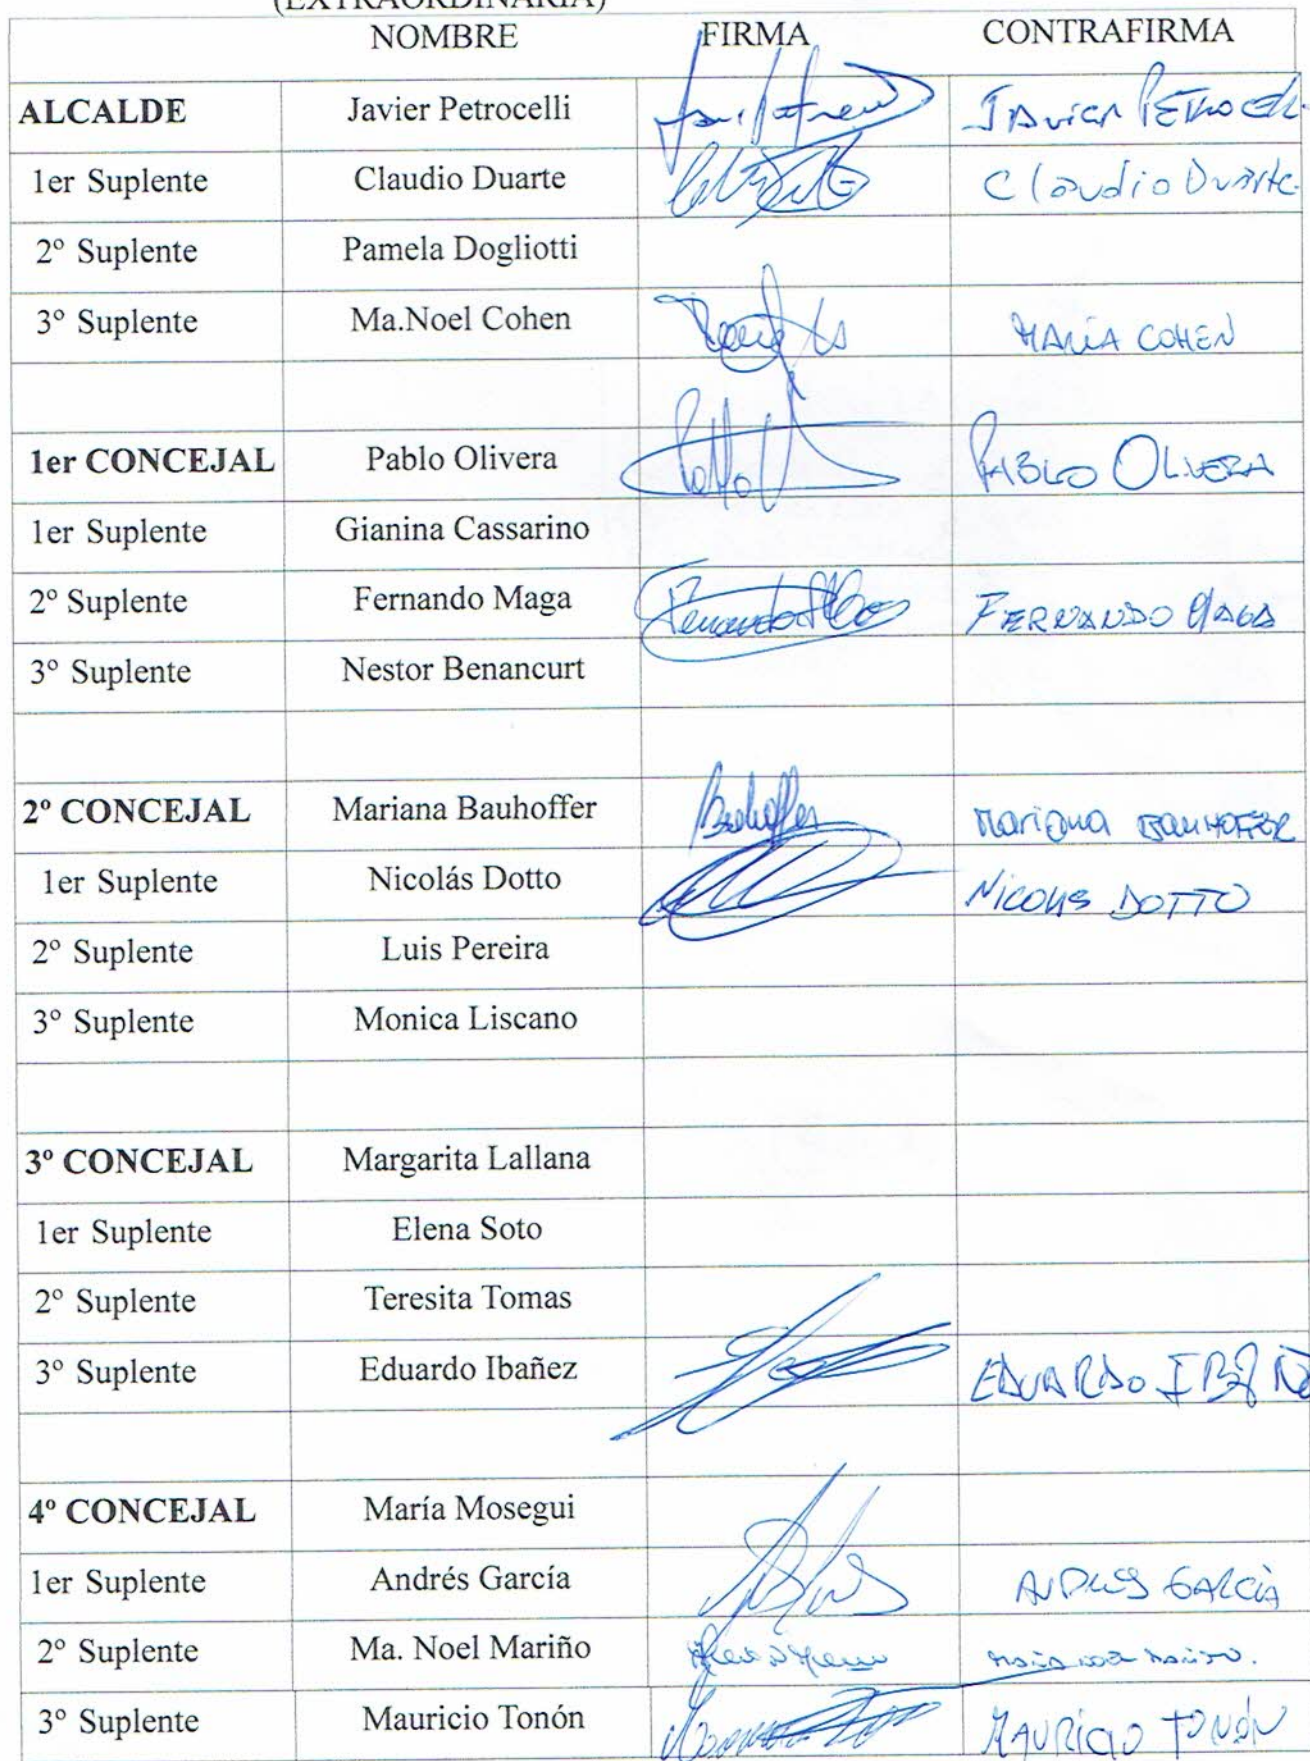 (EXTRAORDINARIA)
NOMBRE FIRMA CONTRAFIRMA
ALCALDE Javier Petrocelli JAVIER PETROCELLI
1er Suplente Claudio Duarte Claudio Duarte
2º Suplente Pamela Dogliotti
3º Suplente Ma.Noel Cohen MARÍA COHEN
1er CONCEJAL Pablo Olivera PABLO OLIVERA
1er Suplente Gianina Cassarino
2º Suplente Fernando Maga FERNANDO MAGA
3º Suplente Nestor Benancurt
2º CONCEJAL Mariana Bauhoffer Bauhoffer Mariana BAUHOFFER
1er Suplente Nicolás Dotto Nicolás DOTTO
2º Suplente Luis Pereira
3º Suplente Monica Liscano
3º CONCEJAL Margarita Lallana
1er Suplente Elena Soto
2º Suplente Teresita Tomas
3º Suplente Eduardo Ibañez EDUARDO IBAÑE
4º CONCEJAL María Mosegui
1er Suplente Andrés García ANDRES GARCÍA
2º Suplente Ma. Noel Mariño
3º Suplente Mauricio Tonón MAURICIO TONÓN